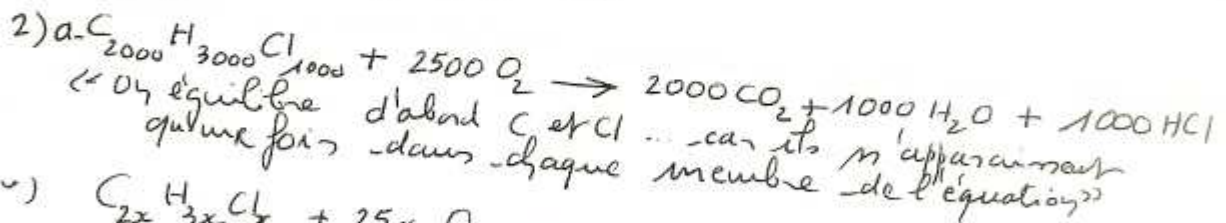 2) a- C₂₀₀₀ H₃₀₀₀ Cl₁₀₀₀ + 2500 O₂ → 2000 CO₂ + 1000 H₂O + 1000 HCl
« On équilibre d'abord C et Cl ... car ils n'apparaissent
qu'une fois dans chaque membre de l'équation »
C₂ₓ H₃ₓ Clₓ + 25 O